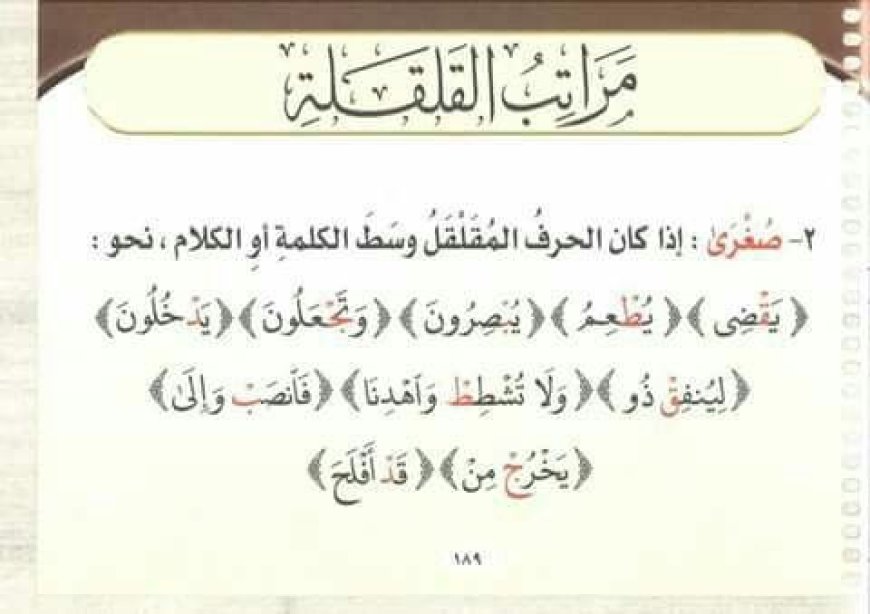 مَرَاتِبُ القَلقَلةِ
٢- صُغْرَىٰ : إذا كان الحرفُ المُقَلْقَلُ وسَطَ الكلمةِ أوِ الكلام ، نحو :
﴿يَقْضِى﴾ ﴿يُطْعِمُ﴾ ﴿يُبْصِرُونَ﴾ ﴿وَتَجْعَلُونَ﴾ ﴿يَدْخُلُونَ﴾
﴿لِيُنفِقْ ذُو﴾ ﴿وَلَا تُشْطِطْ وَٱهْدِنَا﴾ ﴿فَٱنصَبْ وَإِلَىٰ﴾
﴿يَخْرُجْ مِنْ﴾ ﴿قَدْ أَفْلَحَ﴾
١٨٩